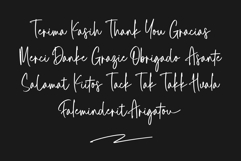 Terima Kasih Thank You Gracias
Merci Danke Grazie Obrigado Asante
Salamat Kiitos Tack Tak Takk Hvala
Faleminderit Arigatou